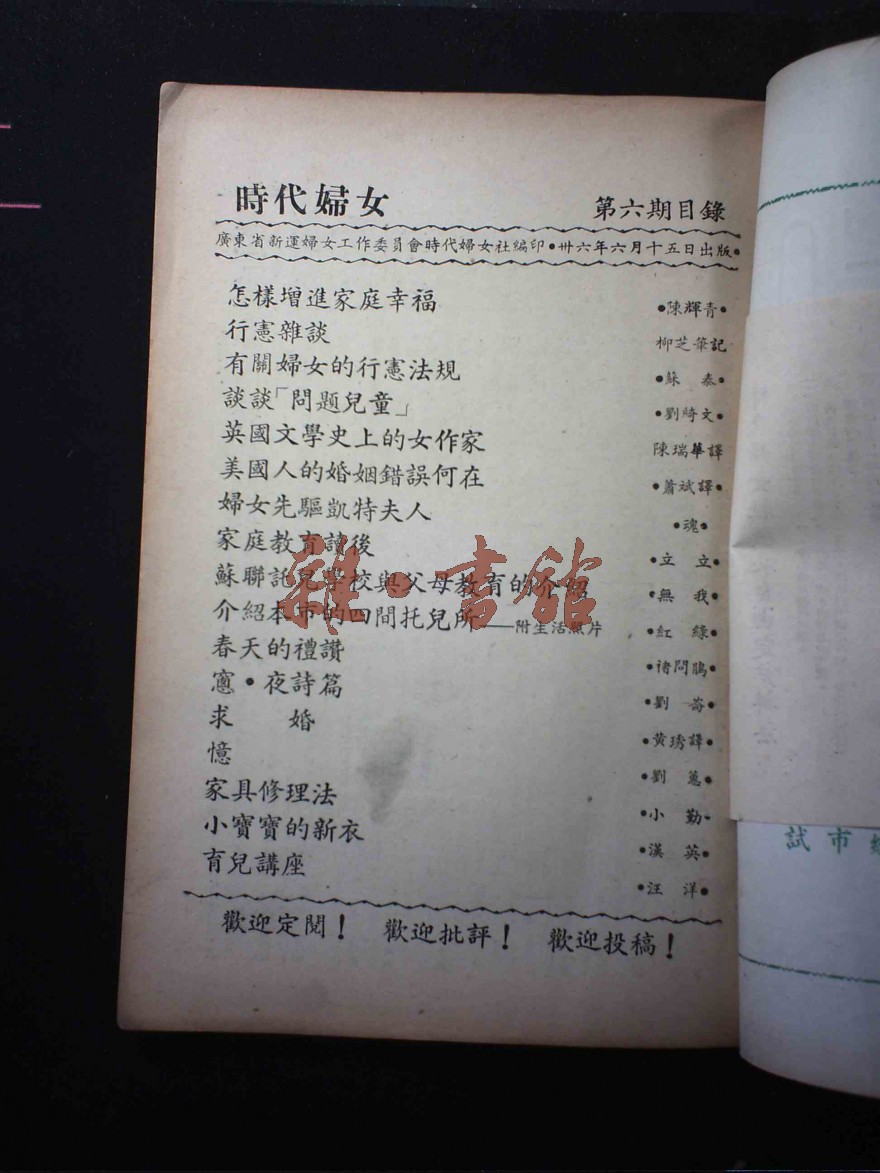 時代婦女 第六期目錄
廣東省新運婦女工作委員會時代婦女社編印•卅六年六月十五日出版•
怎樣增進家庭幸福 •陳輝青•
行憲雜談 柳芝筆記
有關婦女的行憲法規 •蘇 泰•
談談「問題兒童」 •劉㛿文•
英國文學史上的女作家 陳瑞華譯
美國人的婚姻錯誤何在 •蕭斌譯•
婦女先驅凱特夫人 •魂•
家庭教育讀後 •立 立•
蘇聯託兒學校與父母教育的介紹 •無 我•
介紹本市的四間托兒所——附生活照片 •紅 綠•
春天的禮讚 •褚問鵑•
窻•夜詩篇 •劉 崙•
求 婚 •黃琇譯•
憶 •劉 蔥•
家具修理法 •小 勤•
小寶寶的新衣 •漢 英•
育兒講座 •汪 洋•
歡迎定閱！ 歡迎批評！ 歡迎投稿！
雜•書館
試市